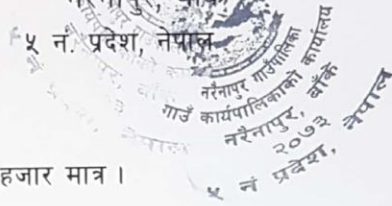 नरैनापुर, बाँके
५ नं. प्रदेश, नेपाल
नरैनापुर गाउँपालिका
गाउँ कार्यपालिकाको कार्यालय
नरैनापुर, बाँके
२०७३
५ नं प्रदेश, नेपाल
हजार मात्र ।